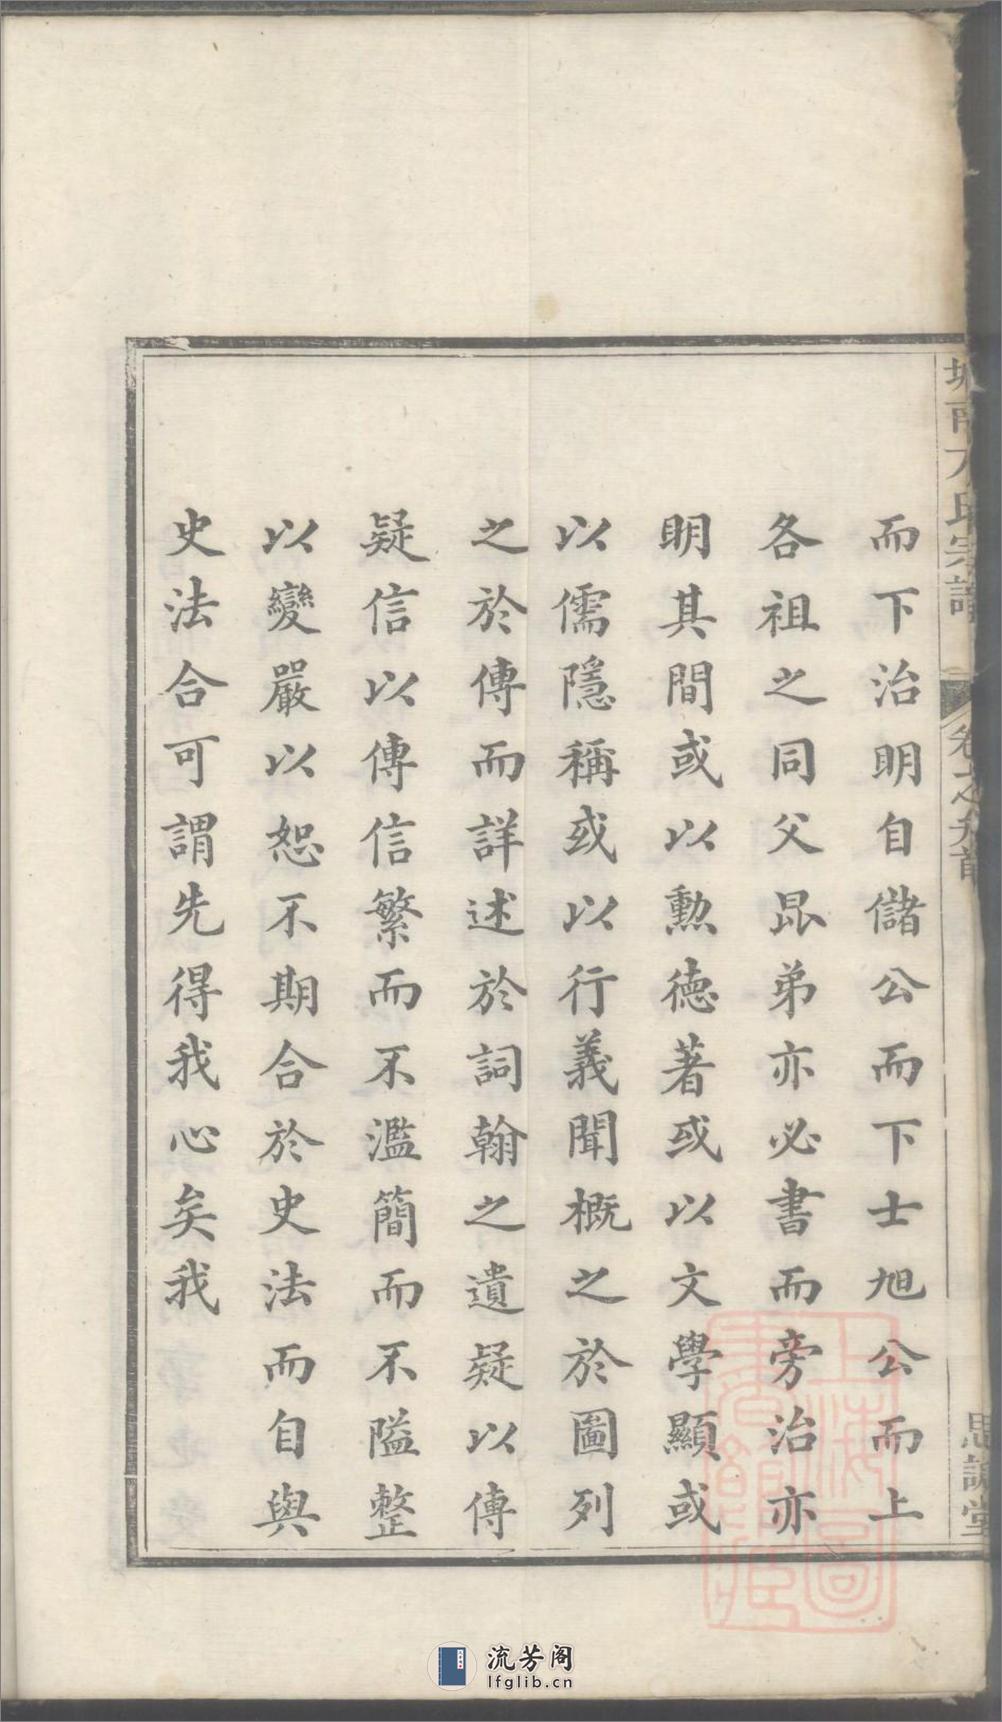 而下治明自儲公而下士旭公而上
各祖之同父昆弟亦必書而旁治亦
明其間或以勲德著或以文學顯或
以儒隱稱或以行義聞概之於圖列
之於傳而詳述於詞翰之遺疑以傳
疑信以傳信繁而不濫簡而不隘整
以變嚴以恕不期合於史法而自與
史法合可謂先得我心矣我
城南方氏宗譜
卷之首
思誠堂
上海圖書館藏
流芳阁
lfglib.cn